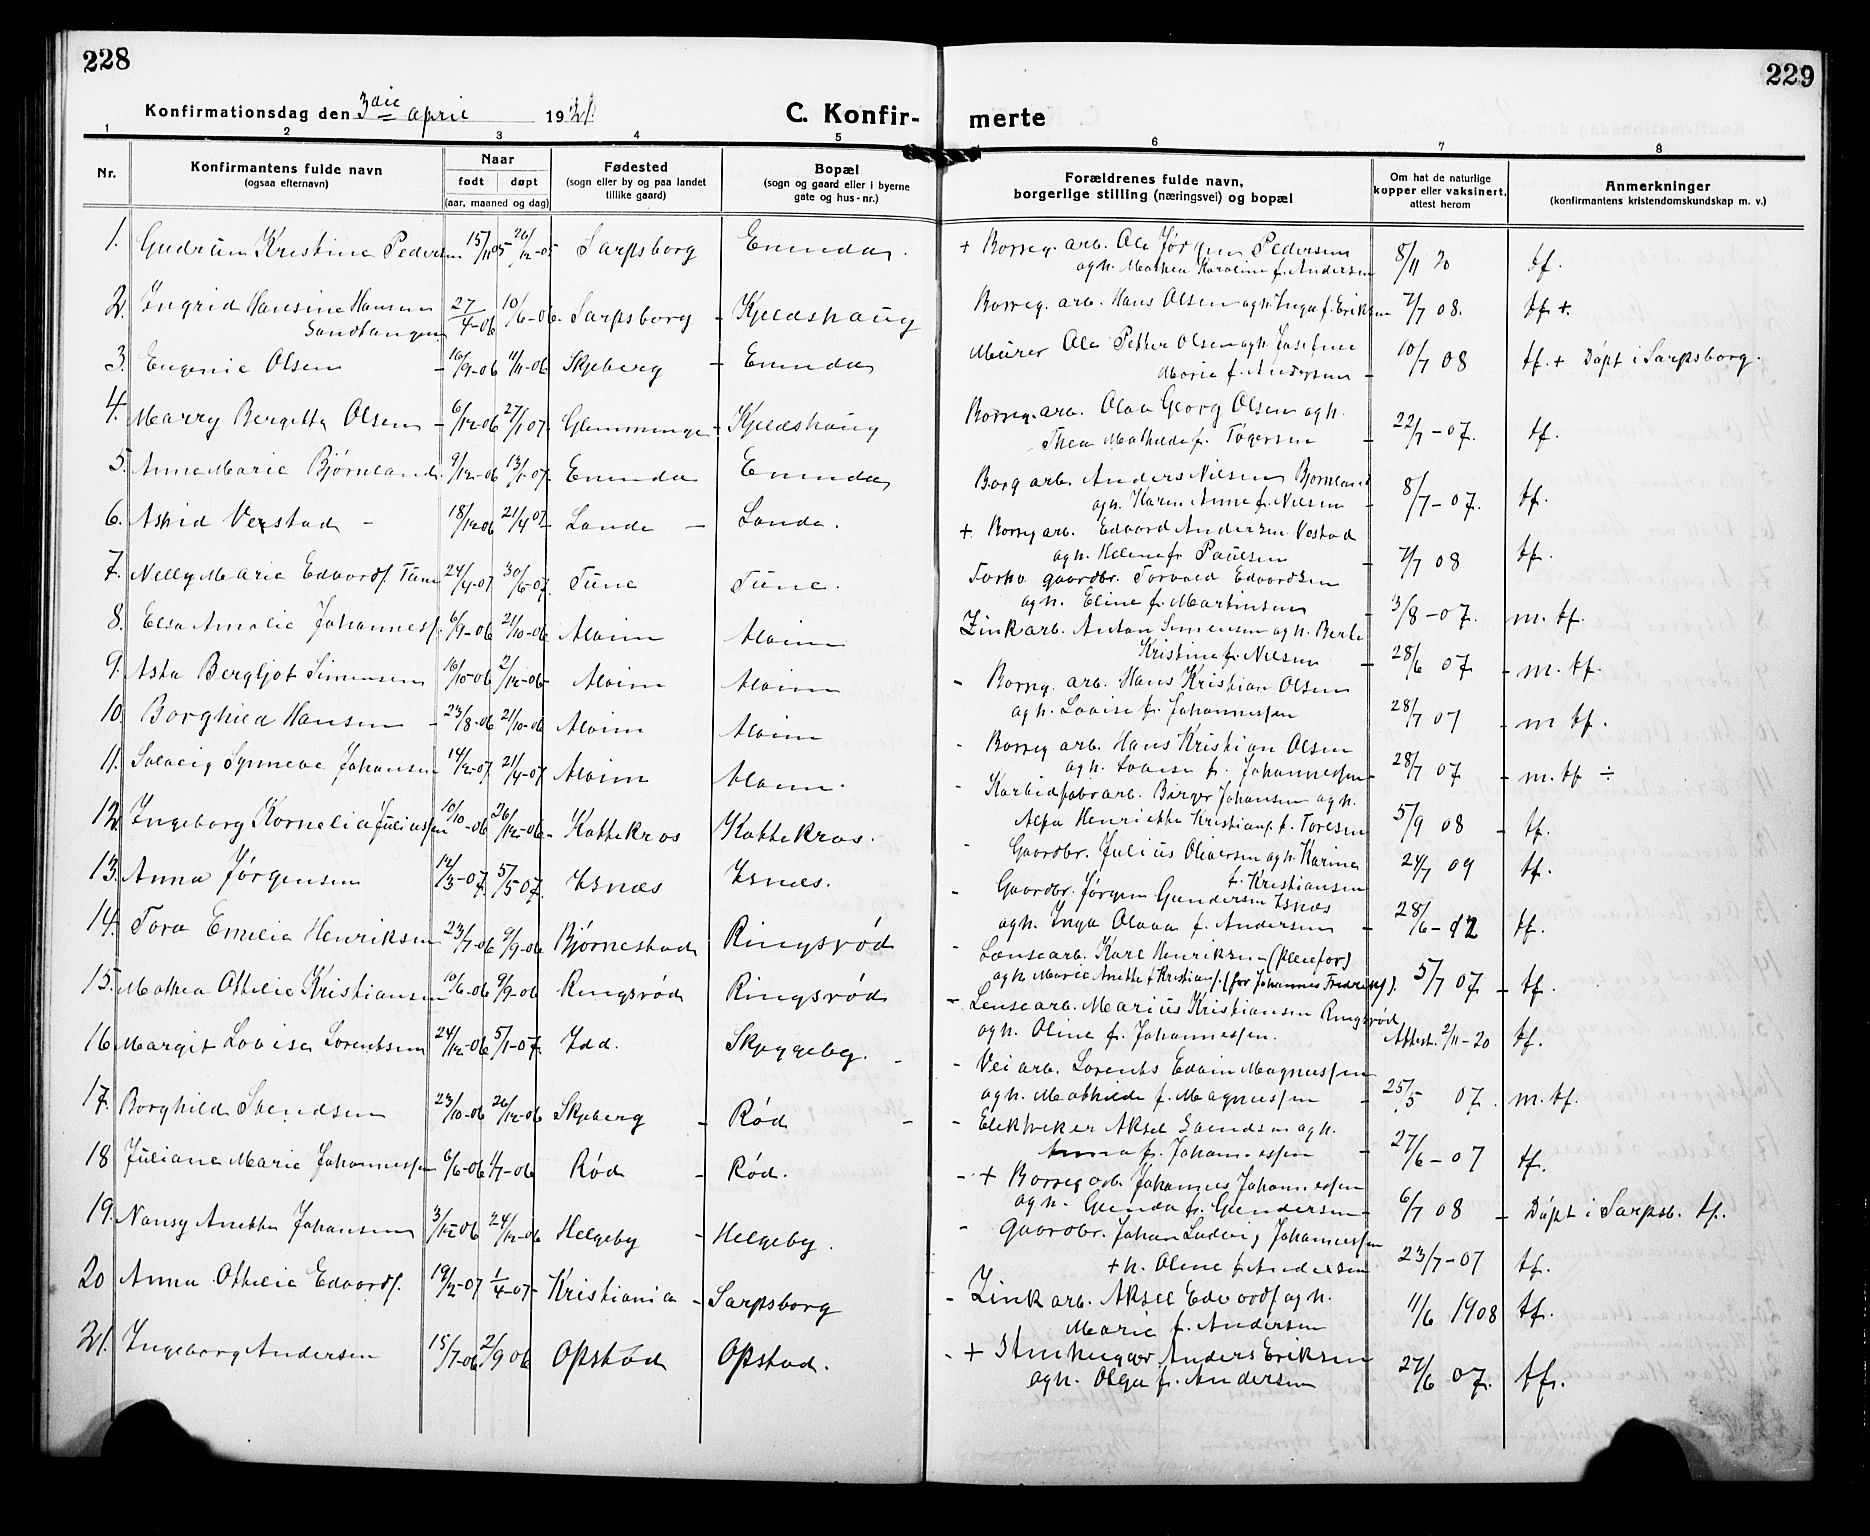 228
229
Konfirmationsdag den 3die april 1921.
C. Konfirmerte
1 2 3 4 5 6 7 8
Nr.
Konfirmantens fulde navn
(ogsaa efternavn)
Naar
født døpt
(aar, maaned og dag)
Fødested
(sogn eller by og paa landet
tillike gaard)
Bopæl
(sogn og gaard eller i byerne
gate og hus-nr.)
Forældrenes fulde navn,
borgerlige stilling (næringsvei) og bopæl
Om hat de naturlige
kopper eller vaksinert,
attest herom
Anmerkninger
(konfirmantens kristendomskundskap m. v.)
1. Gudrun Kristine Pedersen 15/11 05 26/12-05 Sarpsborg Enenda. + Borreg. arb. Ole Jørgen Pedersen
og h. Mathea Karoline f. Andersen 8/11 20 tf.
2. Ingrid Hansine Hansen
Sandtangen 27/4-06 10/6-06 Sarpsborg - Kjeldshaug Borreg. arb. Hans Olsen og h. Inga f. Eriksen 7/7 08. tf +.
3. Eugenie Olsen - 16/9-06 11/11-06 Skjeberg - Enenda Murer Ole Petter Olsen og h. Josefine
Marie f. Andersen - 10/7 08 tf. + Døpt i Sarpsborg.
4. Marry Bergitta Olsen - 6/12-06 27/1 07. Glemminge - Kjeldshaug Borreg. arb. Olaa Georg Olsen og h.
Thea Mathilde f. Tøgersen - 22/7-07. tf.
5. Anna Marie Bjørnland 9/12-06 13/1-07. Enenda Enenda Borg arb. Anders Nilsen Bjørnland
og h. Karen Anna f. Nilsen 8/7-07. tf.
6. Astrid Vestad - 18/12 06 21/4 07 - Lande - Lande. + Borreg arb. Edvard Andersen Vestad
og h. Helene f. Paulsen - 7/7 08 tf.
7. Nelly Marie Edvardf. Tune 24/4-07 30/6-07. Tune Tune. Torho gaardbr. Torvald Edvardsen
og h. Eline f. Martinsen - 3/8-07. m. tf.
8. Elsa Amalie Johannesf. 6/9-06 21/10-06 Alvim Alvim Zinkarb. Anton Simensen og h. Berte
Kristine f. Nilsen - 28/6 07 - m. tf.
9. Asta Bergljot Simensen 16/10-06 2/12-06 Alvim Alvim - Borreg. arb. Hans Kristian Olsen
og h. Lovise f. Johannessen 28/7 07 - m tf.
10. Borghild Hansen - 23/8-06 21/10-06 Alvim Alvim - Borreg arb. Hans Kristian Olsen
og h. Lovise f. Johannessen - 28/7 07 - m. tf ÷
11. Solveig Synneve Johansen 14/2-07 21/4-07 Alvim Alvim. - Karbidfabr arb. Birger Johansen og h.
Alfa Henriette Kristians. f. Toresen 5/9 08 - tf.
12. Ingeborg Kornelia Juliussen 10/10-06 26/12-06 - Kattekras Kattekras. - Gaardbr. Julius Oliversen og h. Karine
f. Kristiansen 24/7 09 tf.
13. Anna Jørgensen 12/3-07. 5/5 07. Isnæs Isnæs. - Gaardbr. Jørgen Gundersen Isnæs
og h. Inga Olava f. Andersen - 28/6-12 tf.
14. Tora Emilie Henriksen 23/7-06 9/9-06 Bjørnestad Ringsrød - Lænsearb. Karl Henriksen - (pleiefor)
og h. Marie Anette f. Kristians. (for Johannes Fredriks). 5/7 07 - tf.
15. Mathea Othilie Kristiansen 10/6-06 9/9-06 Ringsrød Ringsrød - Lensearb. Marius Kristiansen Ringsrød
og h. Oline f. Johannessen. Attest. 2/11-20 tf.
16 Margit Lovise Lorentsen 24/12-06 5/1-07. Idd. Skyggeby. - - Vei arb. Lorents Edvin Magnussen
og h. Mathilde f. Magnussen - 25/5 07. m. tf.
17. Borghild Svendsen 23/10-06 26/12-06 Skjeberg - Rød - - Elektriker Aksel Svendsen og h.
Anna f. Johannessen - 27/6-07 tf.
18 Juliane Marie Johannessen 6/6-06 1/7-06 Rød - Rød. - + Borreg arb. Johannes Johannessen
og h. Gunda f. Gundersen - 6/7 08 - Døpt i Sarpsb. tf.
19. Nansy Anette Johansen 3/12 06 24/12-06 Helgeby - Helgeby. - Gaardbr. Johan Ludvig Johannessen
+ h. Oline f. Andersen 23/7-07 tf.
20 Anna Othilie Edvardf. 19/2-07 1/4-07 - Kristiania - Sarpsborg - Zink arb. Aksel Edvardf og h.
Marie f. Andersen 11/6 1908 tf.
21. Ingeborg Andersen 15/7-06 2/9 06 Opstad Opstad. - + Stenhugger Anders Eriksen
og h. Olga f. Andersen 27/6 07. tf.